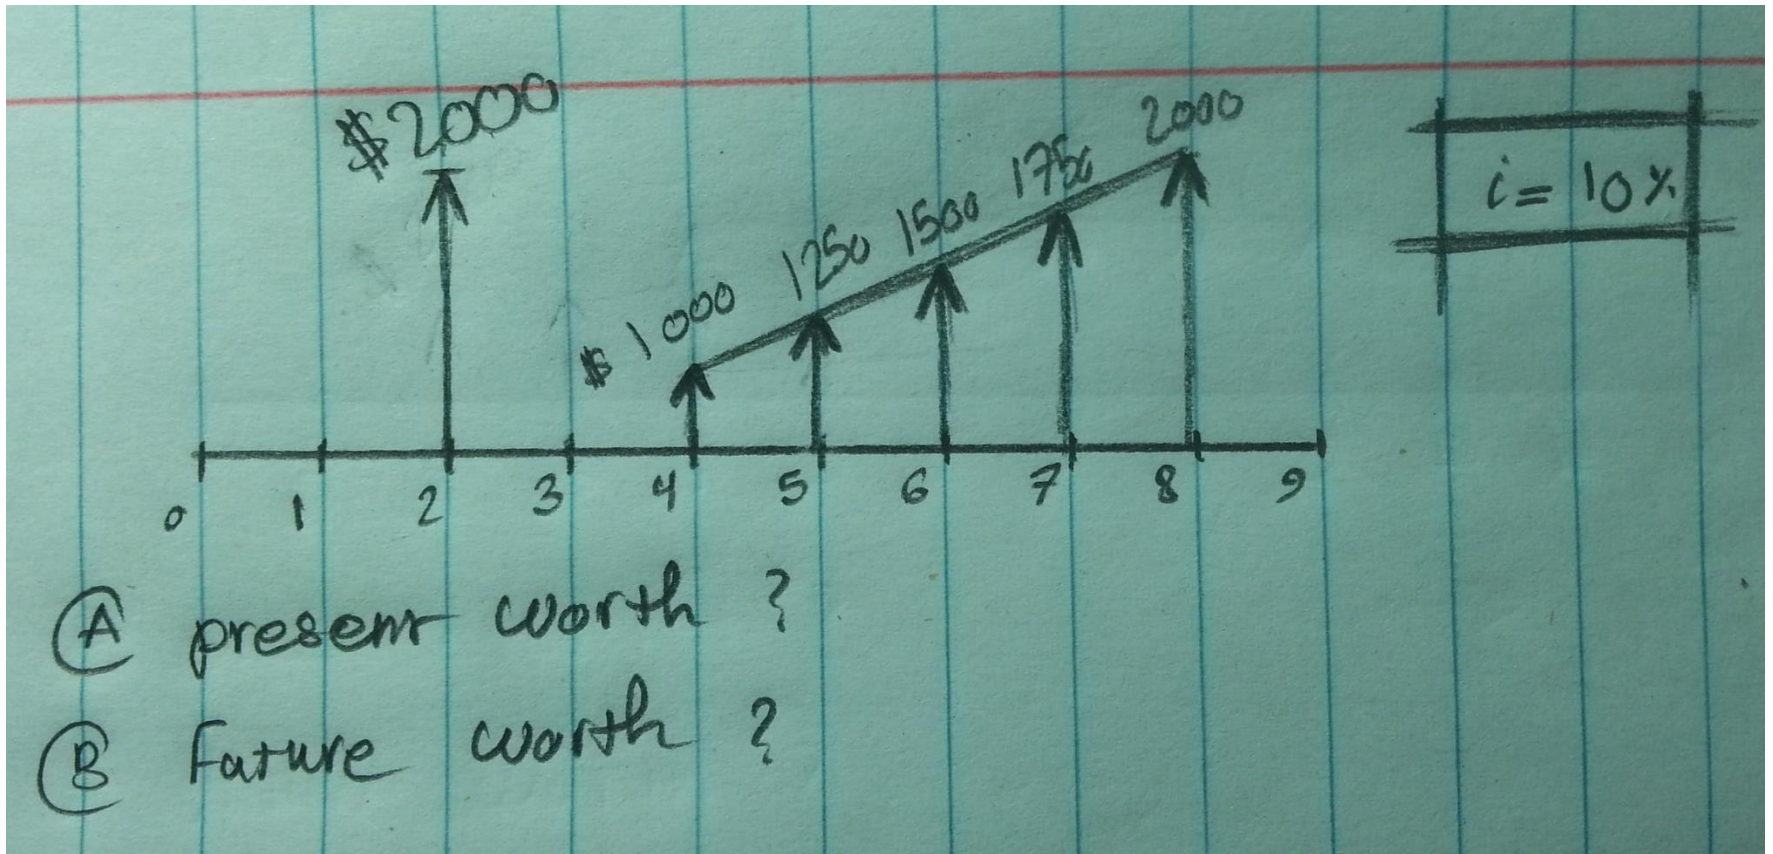 $2000
$1000 1250 1500 1750 2000
i = 10%
0 1 2 3 4 5 6 7 8 9
A present worth ?
B Future worth ?